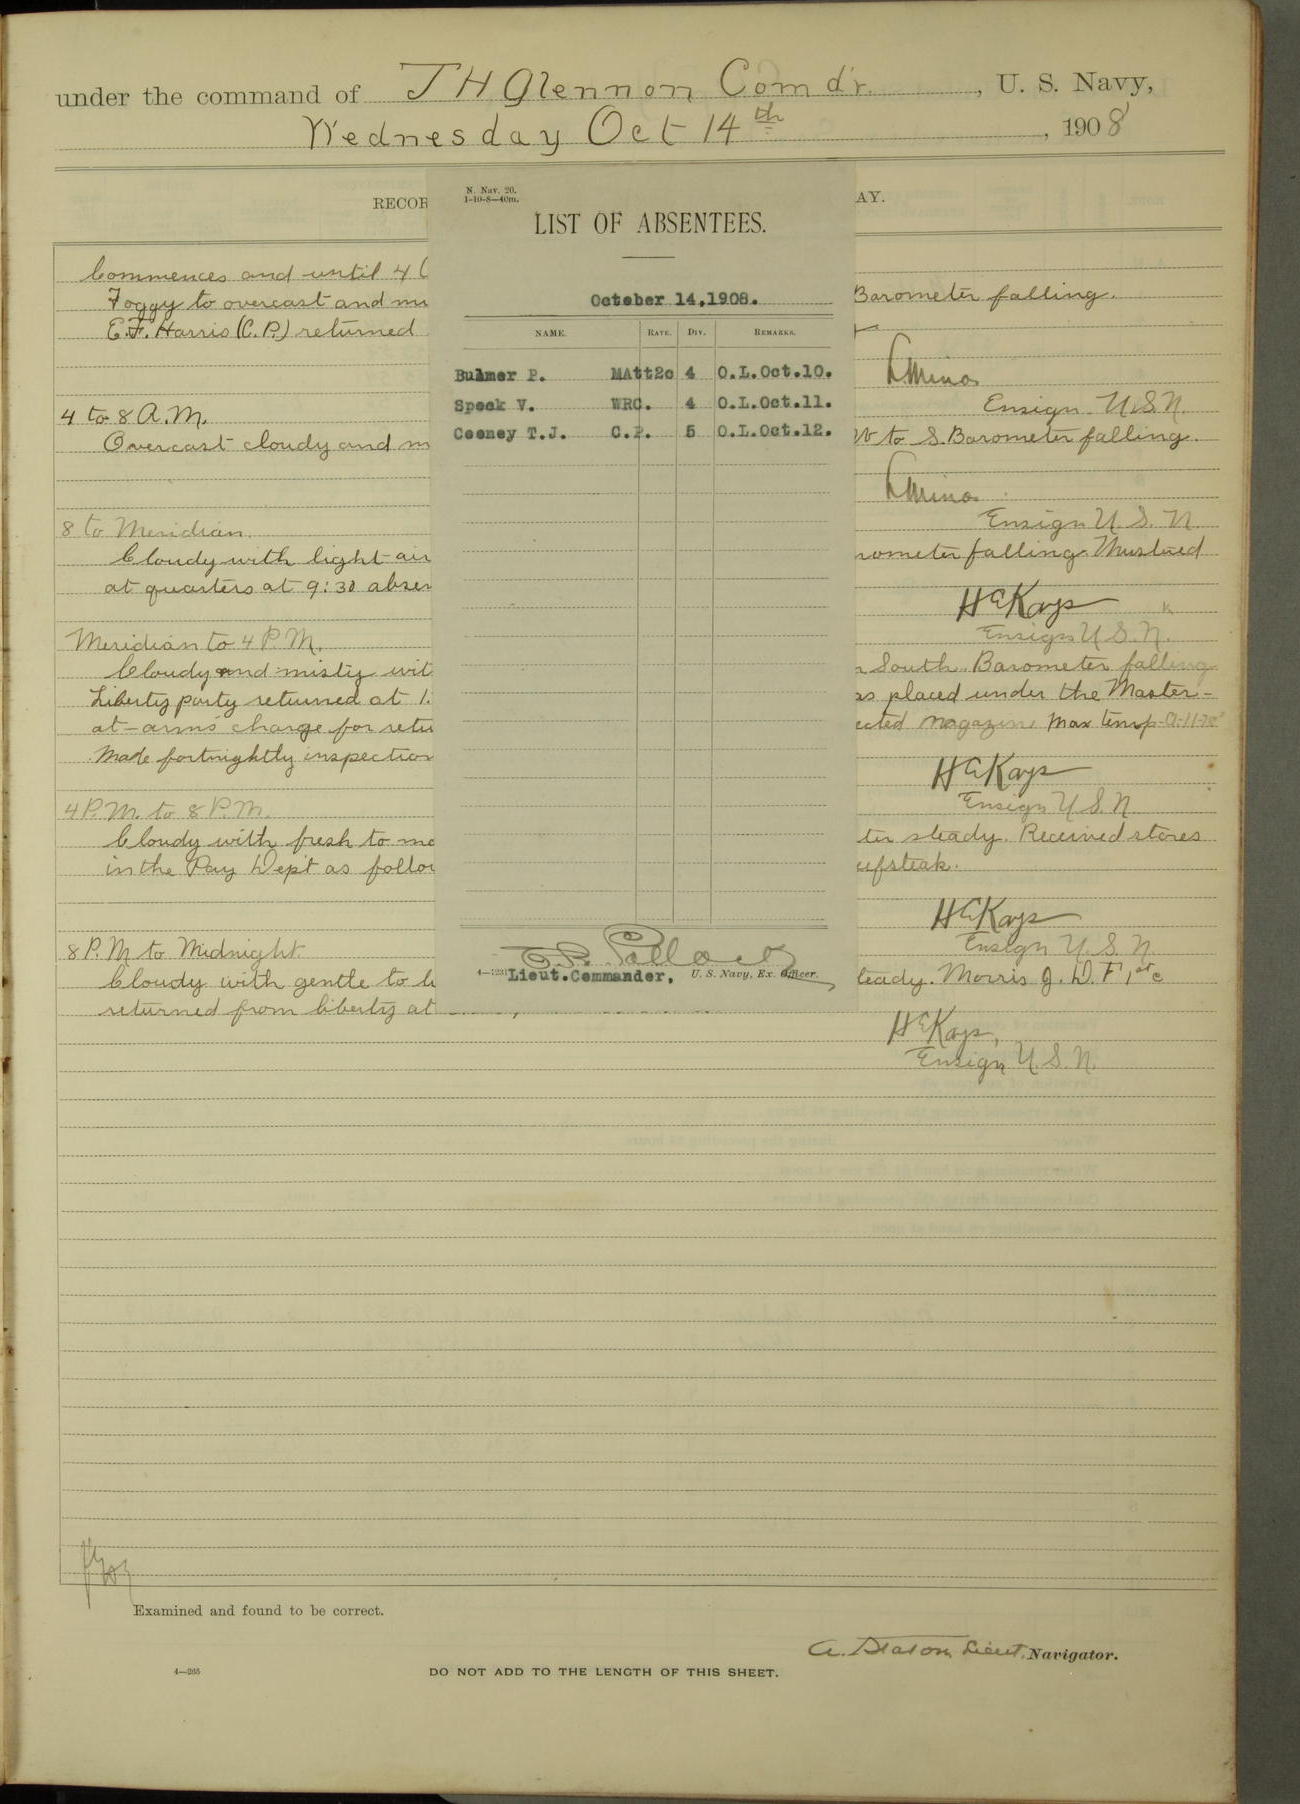 under the command of J H Glennon Com'd'r. , U. S. Navy,
Wednesday Oct 14th , 1908
RECOR
AY.
Commences and until 4
Foggy to overcast and
Barometer falling.
E.F. Harris (C.P.) returned
Ensign U.S.N.
4 to 8 A.M.
Overcast cloudy and
to S. Barometer falling.
Ensign U.S.N.
8 to Meridian.
Cloudy with light air
rometer falling. Mustered
at quarters at 9:30 absen
H E Kays
Ensign U.S.N.
Meridian to 4 P.M.
Cloudy and misty wit
South. Barometer falling
Liberty party returned at 1.
as placed under the Master-
at-arms' charge for retu
ected magazine, Max temp
Made fortnightly inspection
H E Kays
Ensign U.S.N.
4 P.M. to 8 P.M.
Cloudy with fresh to mo
ter steady. Received stores
in the Pay Dep't as follow
eefsteak.
H E Kays
Ensign U.S.N.
8 P.M. to Midnight.
Cloudy with gentle to
teady. Morris J. D. F 1st c
returned from liberty at
H E Kays,
Ensign U.S.N.
N. Nav. 20.
1-10-8—40m.
LIST OF ABSENTEES.
October 14, 1908.
NAME. RATE. DIV. REMARKS.
Bulmer P. MAtt2c 4 O.L.Oct.10.
Speck V. WRC. 4 O.L.Oct.11.
Cooney T.J. C.P. 5 O.L.Oct.12.
4—1231 Lieut.Commander, U. S. Navy, Ex. Officer.
Examined and found to be correct.
Lieut, Navigator.
4—265
DO NOT ADD TO THE LENGTH OF THIS SHEET.